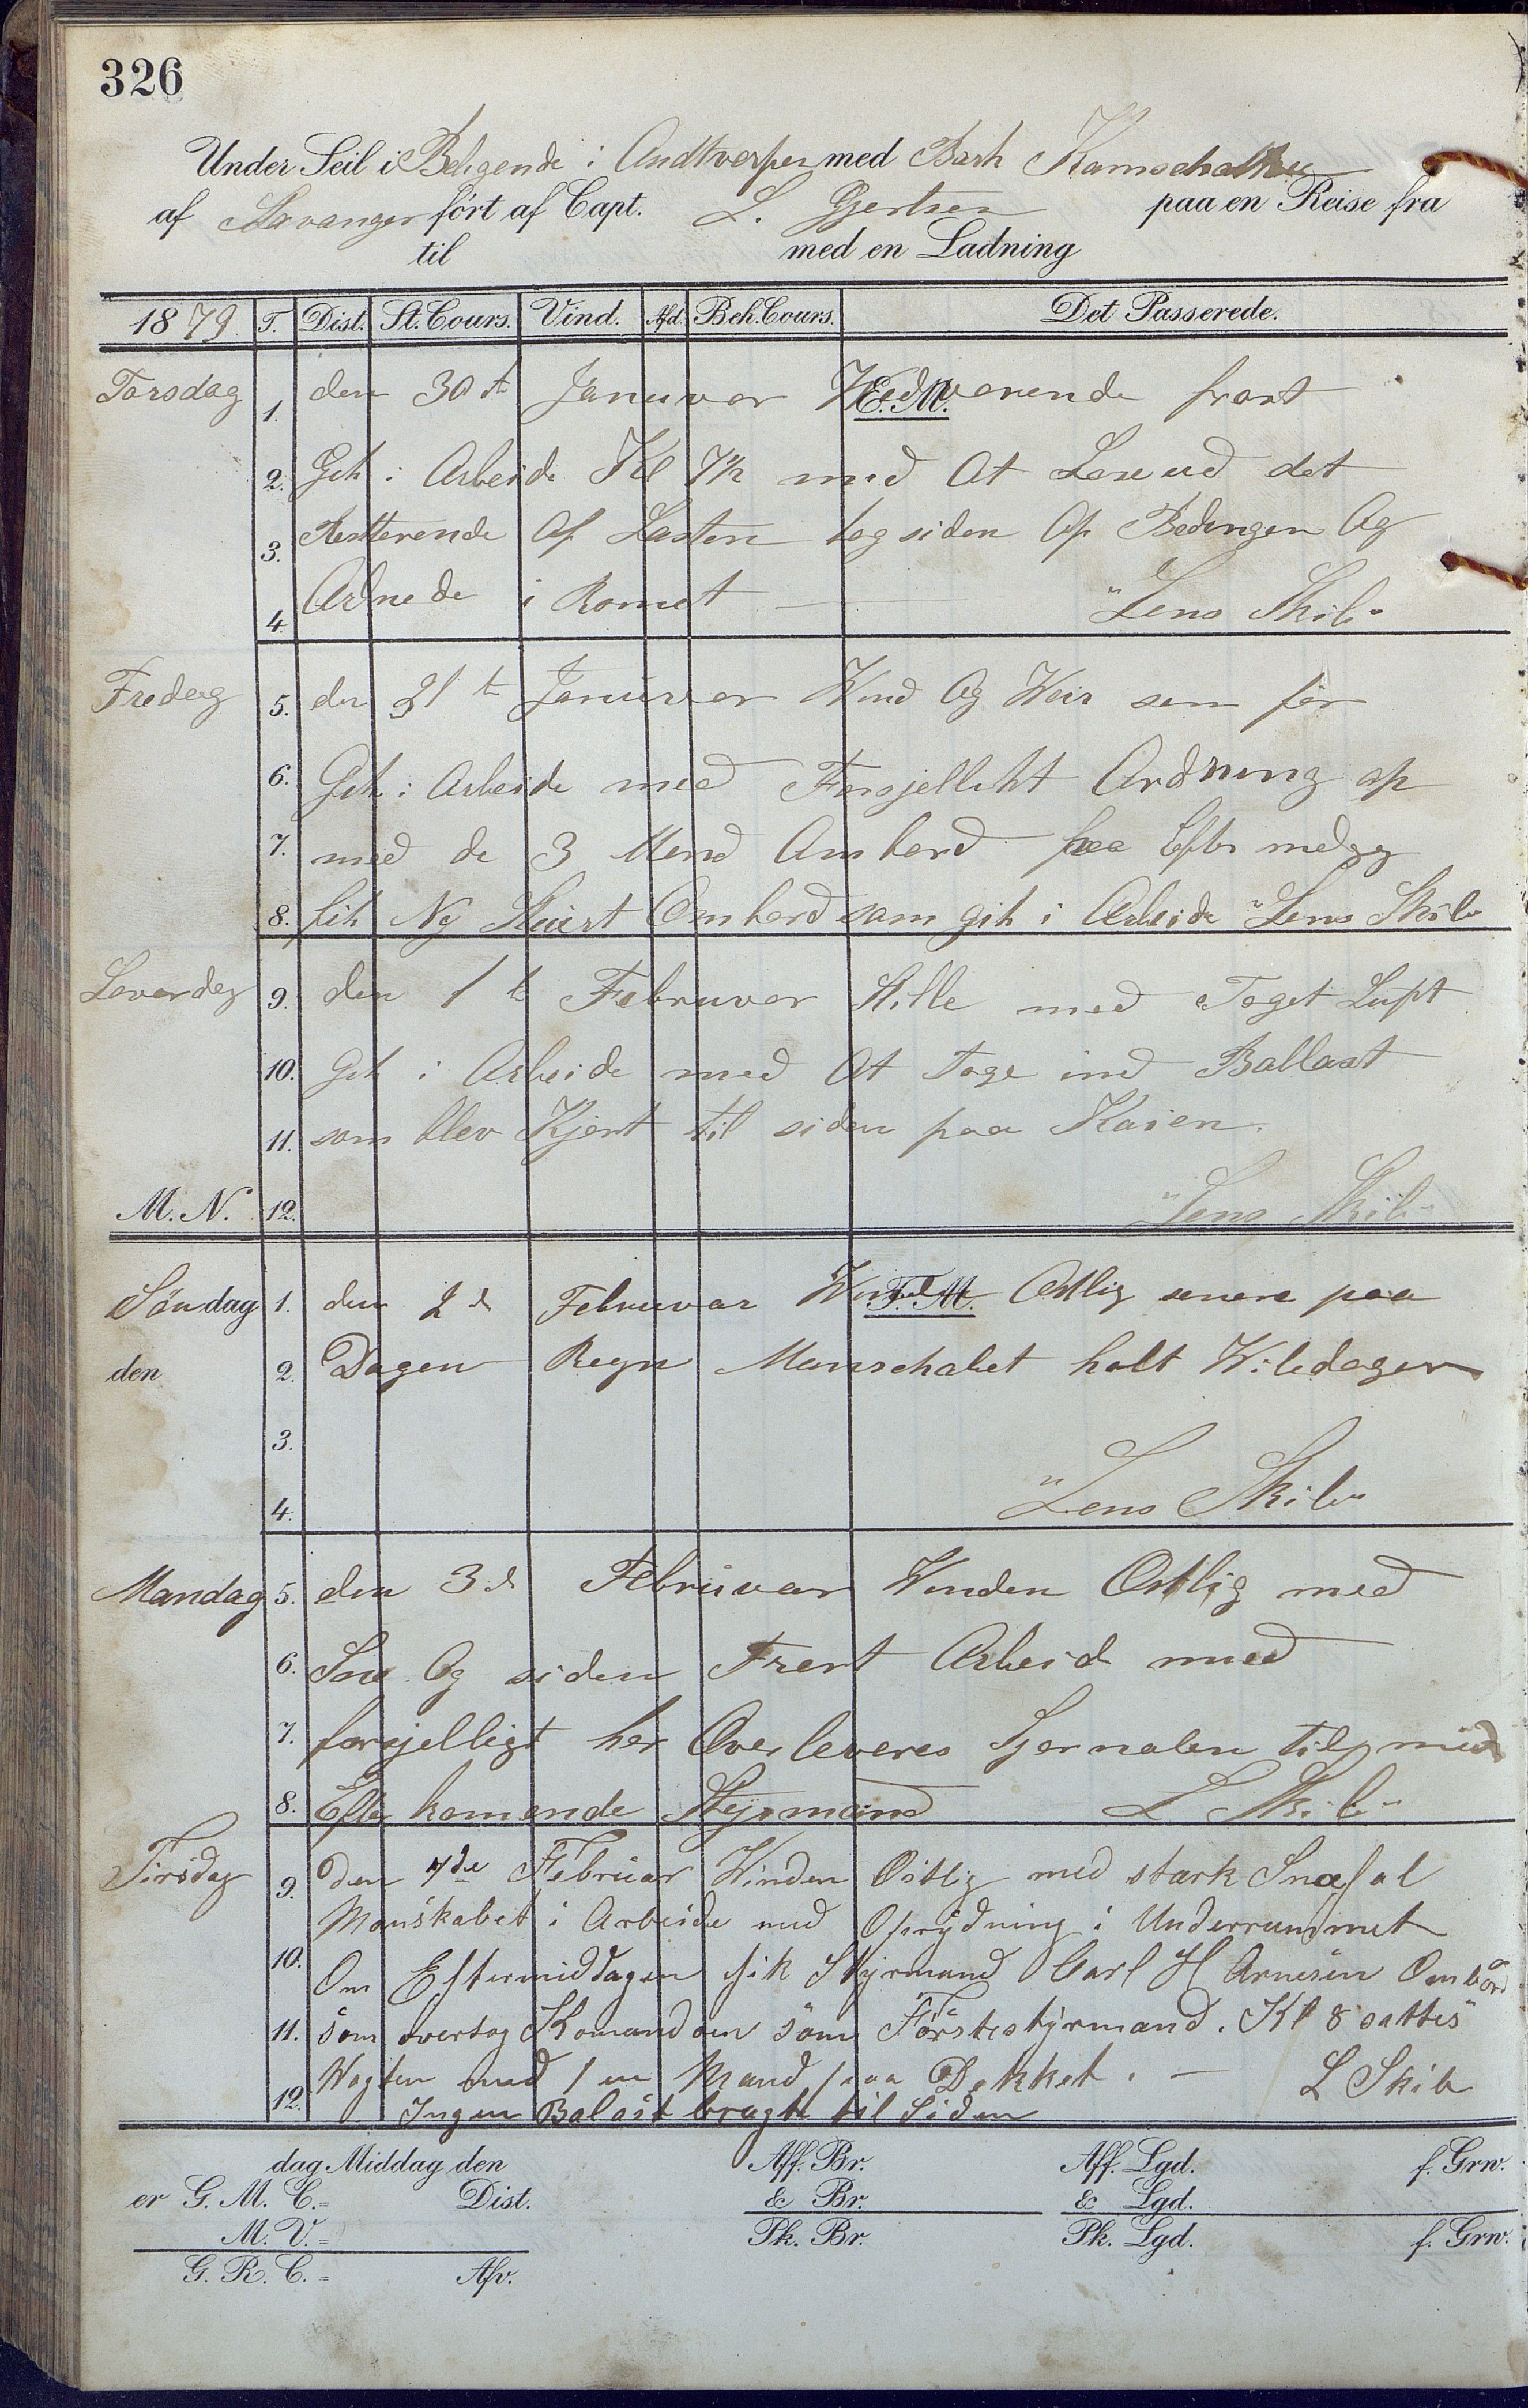 326
Under Seil i Beligende i Andtverpen med Bark Kamschatka
af Stavanger fört af Capt. L. Gjertsen paa en Reise fra
til med en Ladning
1879 T. Dist. St. Cours. Vind. Afd. Beh. Cours. Det Passerede.
Torsdag 1. den 30t Januvar Wedvarende frost
E.M.
2. Gik i Arbeide Kl 7½ med At Lose ud det
3. Resterende Af Lasten tog siden Op Bedingen Og
4. Ordnede i Romet "Lens Skib"
Fredag 5. den 31t Januvar Wind Og Weir som för
6. Gik i Arbeide med Forsjellikt Ordning op
7. med de 3 Mend Ombord paa Efter medag
8. fik Ny Stuert Ombord som gik i Arbeide "Lens Skib"
Loverdag 9. den 1t Februvar Stille med Toget Luft
10. Gik i Arbeide med At Toge ind Ballast
11. som blev Kjört til siden paa Kaien.
M. N. 12. "Lens Skib"
Söndag 1. den 2d Februvar Wind Ostlig senere paa
F.M.
den 2. Dagen Regn Manschabet holt Wiledagen
3.
4. "Lens Skib"
Mandag 5. den 3d Februvar Winden Ostlig med
6. Sne Og siden Frost Arbeid med
7. forsjelligt her Overleveres Sjornalen til med
8. Efter komende Styrmand L Skib"
Tirsdag 9. Den 4de Februar Winden Östlig med stærk Snefal
Manskabet i Arbeide med Oprydning i Underrummet
10. Om Eftermiddagen fik Styrmand Carl H Arnesen Ombord
11. som overtog Komandoen som Förstestyrmand. Kl 8 sattes
12. Wagten med 1 en Mand paa Dekket. — L Skib
Ingen Balast bragte til Siden
dag Middag den Aff. Br. Aff. Lgd. f. Grw.
er G. M. C. = Dist. & Br. & Lgd.
M. V. = Pk. Br. Pk. Lgd. f. Grw.
G. R. C. = Afv.